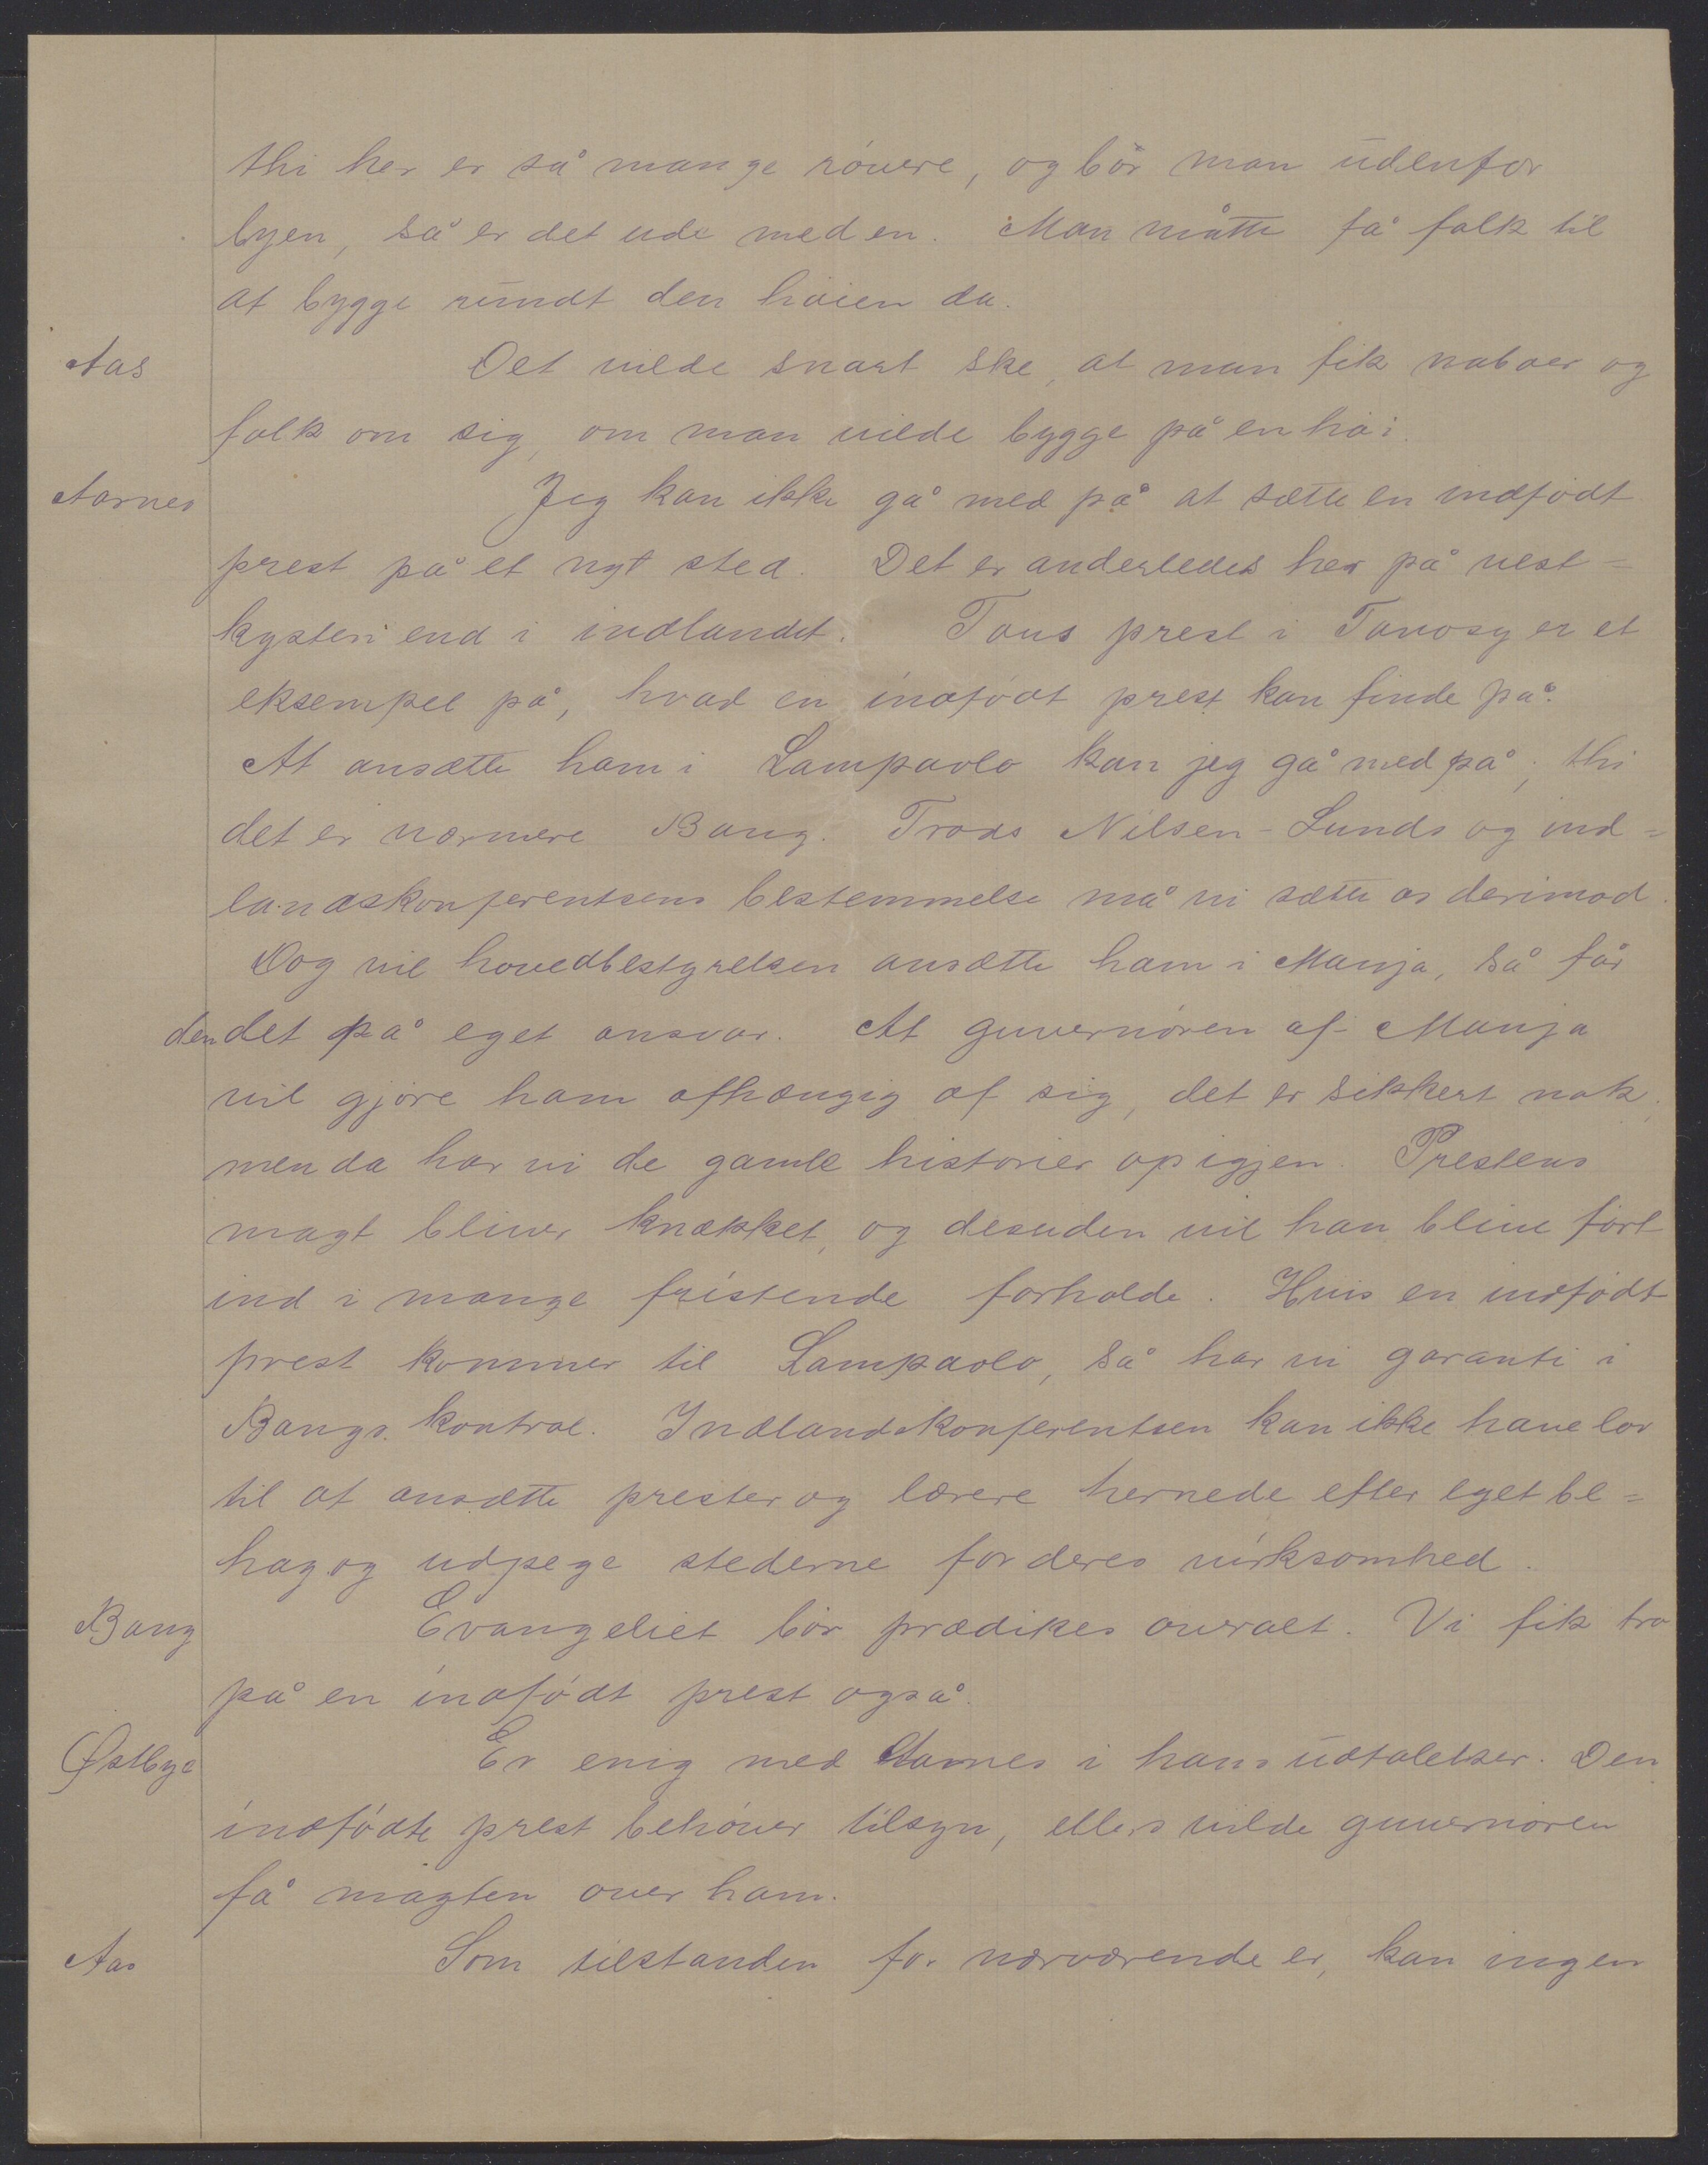 thi her er så mange røvere, og bor man udenfor
byen, så er det ude med en. Man måtte få folk til
at bygge rundt den høien da.
Aas Det vilde snart ske, at man fik naboer og
folk om sig, om man vilde bygge på en høi.
Aarnes Jeg kan ikke gå med på at sætte en indfødt
prest på et nyt sted. Det er anderledes her på vest=
kysten end i indlandet. Tous prest i Tanosy er et
eksempel på, hvad en indfødt prest kan finde på.
At ansætte ham i Lampaolo kan jeg gå med på; thi
det er nærmere Bang. Trods Nilsen-Lunds og ind=
landskonferentsens bestemmelse må vi sætte os derimod.
Dog vil hovedbestyrelsen ansætte ham i Manja, så får
den det på eget ansvar. At guvernøren af Manja
vil gjøre ham afhængig af sig, det er sikkert nok;
men da har vi de gamle historier op igjen. Prestens
magt bliver knækket, og desuden vil han blive ført
ind i mange fristende forholde. Hvis en indfødt
prest kommer til Lampaolo, så har vi garanti i
Bangs kontrol. Indlandskonferentsen kan ikke have lov
til at ansætte prester og lærere hernede efter eget be=
hag og udpege stederne for deres virksomhed.
Bang Evangeliet bør prædikes overalt. Vi fik tro
på en indfødt prest også.
Østbye Er enig med Aarnes i hans udtalelser. Den
indfødte prest behøver tilsyn, ellers vilde guvernøren
få magten over ham.
Aas Som tilstanden for nærværende er, kan ingen